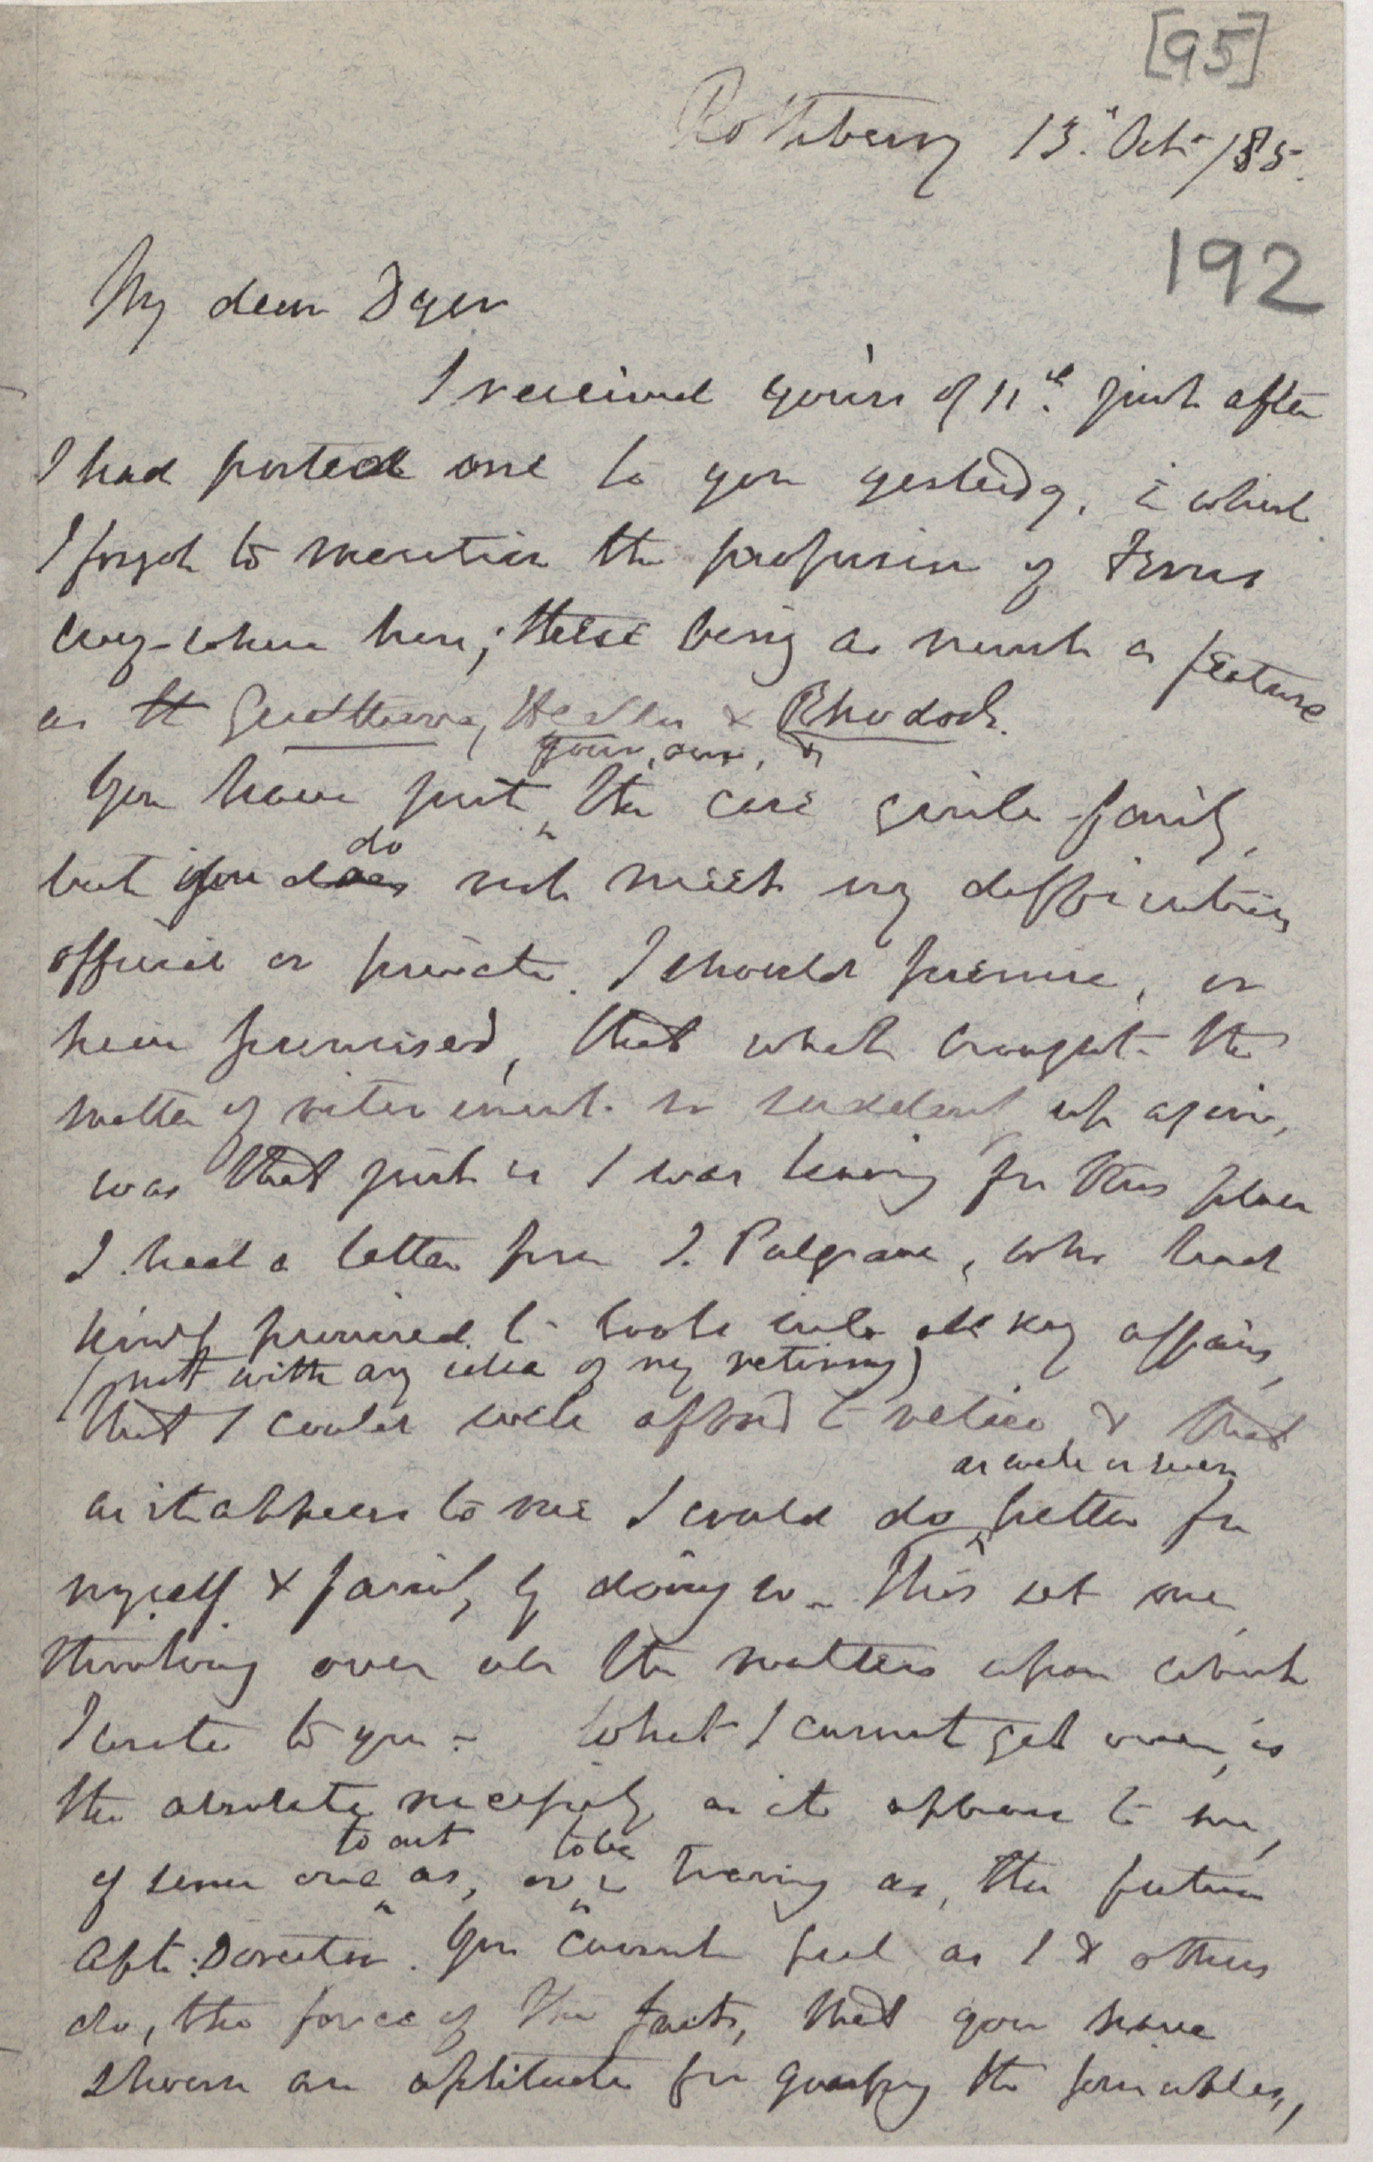 [95]
Rothbury 13. Oct. /85.
192
My dear Dyer
I received yours of 11th. just after
I had posted one to you yesterdy, i which
I forgot to mention the profusion of Ferns
every-where here; these being as much a feature
as the Gualtheria, Heather & Rhodod.
your, our, &
You have put ^ the case quite fairly,
do
but you does not meet my difficulties
official or private. I should premise, or
have premised, that what brought the
matter of retirement so suddenly up again,
was that just as I was leaving for this place
I had a letter from I. Palgrave, who had
kindly promised to look into all my affairs,
(not with any idea of my retiring)
that I could well afford to retire & that
as well or even
as it appears to me I could do ^ better for
myself & family by doing so. This set me
thinking over all the matters upon which
I wrote to you - What I cannot get over, is
the absolute necessity as it appears to me,
to act to be
of some one ^ as, or ^ in training as, the future
Asst: Director. You cannot feel as I & others
do, the force of the facts, that you have
shown an aptitude for grasping the principles,